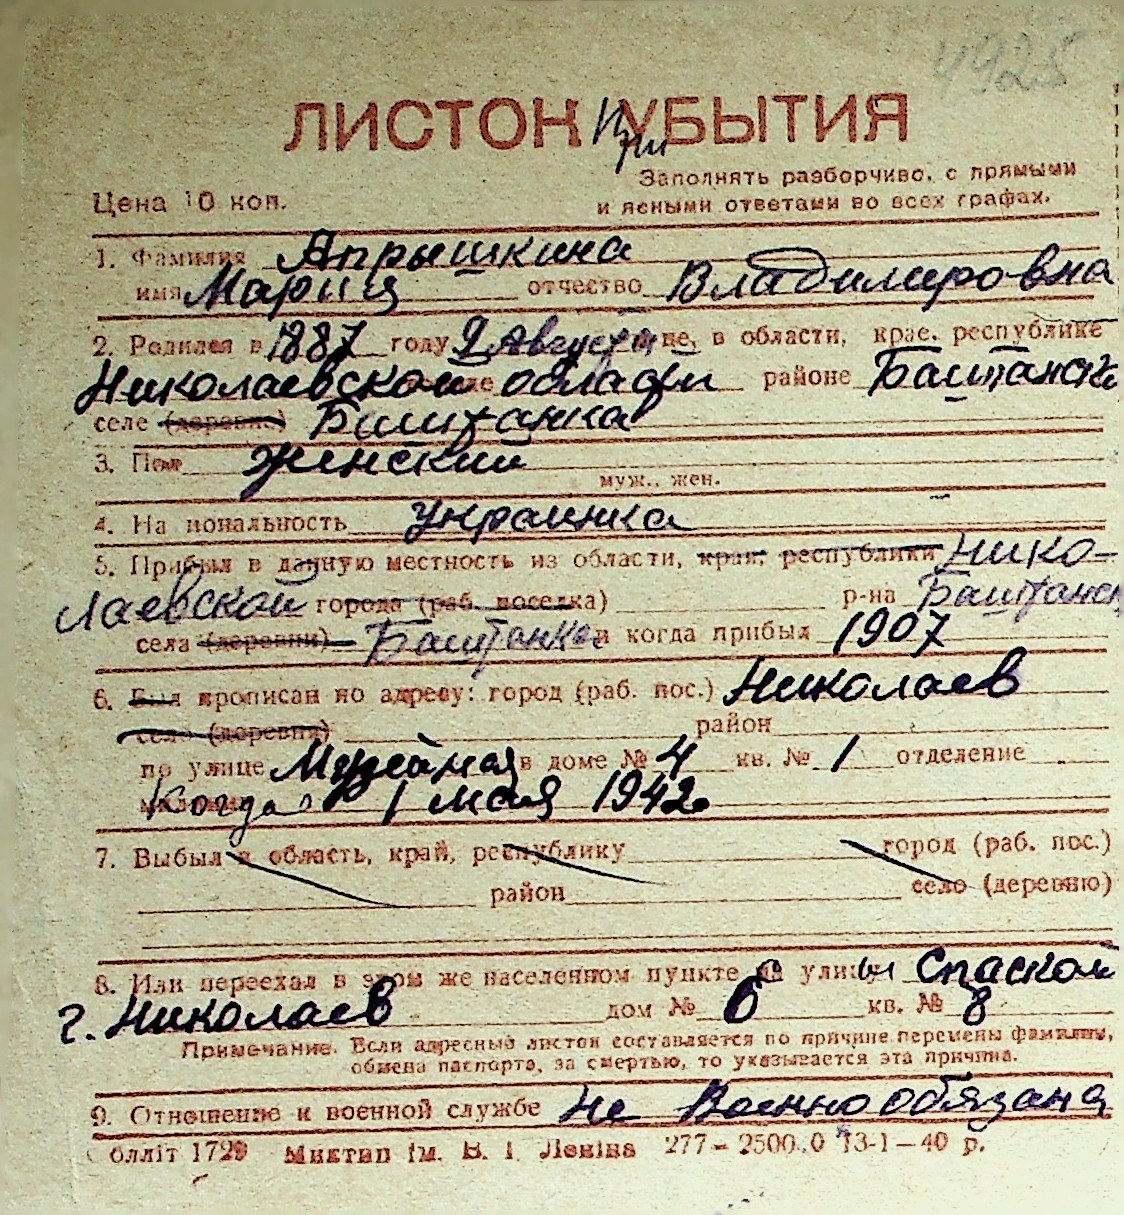 4925
ЛИСТОК При УБЫТИЯ
Заполнять разборчиво, с прямыми
Цена 10 коп.
и ясными ответами во всех графах.
1. Фамилия Апрышкина
имя Мария отчество Владимировна
2. Родился в 1887 году 9 Августа це, в области, крае, республике
Николаевской области районе Баштанск
селе (деревне) Баштанка
3. Пол женский
муж., жен.
4. Национальность украинка
5. Прибыл в данную местность из области, края, республики Нико-
лаевской города (раб. поселка) р-на Баштанск
села (деревни) Баштанка и когда прибыл 1907
6. Был прописан по адресу: город (раб. пос.) Николаев
село (деревня) район
по улице в доме № 4 кв. № 1 отделение
милиции Когда 1 мая 1942
7. Выбыл в область, край, республику город (раб. пос.)
район село (деревню)
8. Или переехал в этом же населенном пункте улицы Спаской
г. Николаев дом № 6 кв. № 8
Примечание. Если адресный листок составляется по причине перемены фамилии,
обмена паспорта, за смертью, то указывается эта причина.
9. Отношение к военной службе не Военнообязана
Обліт 1729 Миктип ім. В. І. Леніна 277 – 2500.0 13-1–40 р.